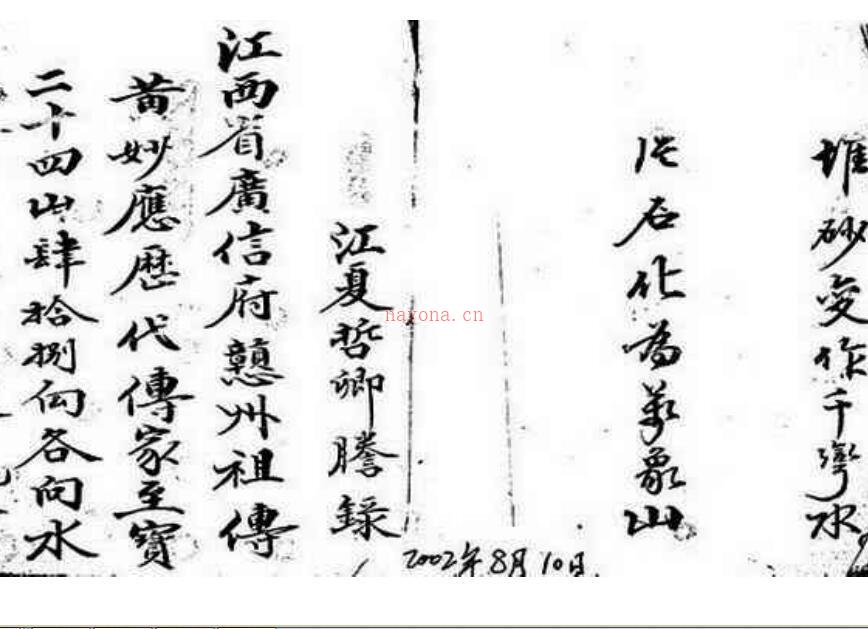 堆砂变作千湾水
片石化為萬象山
江夏哲卿謄錄
江西省廣信府贛州祖傳
黄妙應歷代傳家至寶
二十四山肆拾捌向各向水
2002年8月10日
nayona.cn